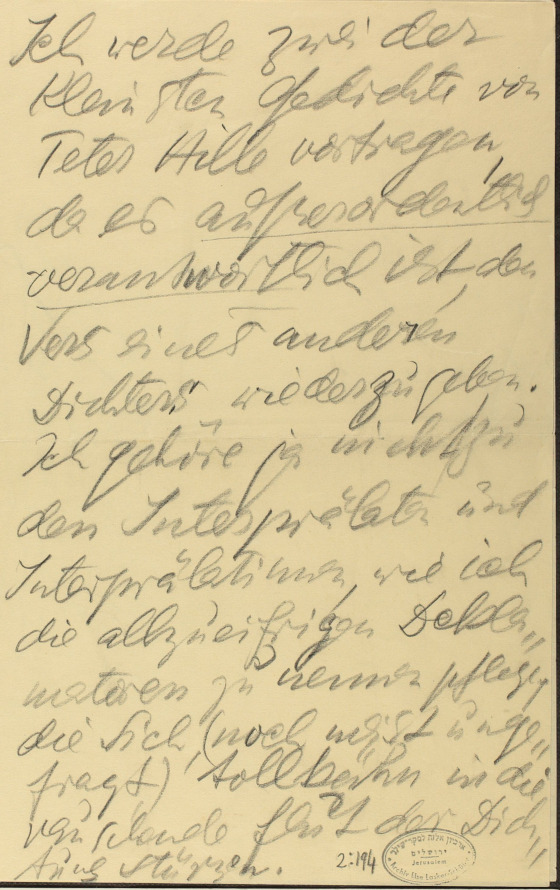 Ich werde zwei der
kleinsten Gedichte von
Peter Hille vortragen,
da es außerordentlich
verantwortlich ist, den
Vers eines anderen
Dichters wiederzugeben.
Ich gehöre ja nicht zu
den Interpräten und
Interprätinnen, wie ich
die allzueifrigen Dekla„
matoren zu nennen pflege,
die sich, (noch meist unge„
fragt) tollkühn in die
rauschende Flut der Dich„
tung stürzen.
2:194
ירושלים
Jerusalem